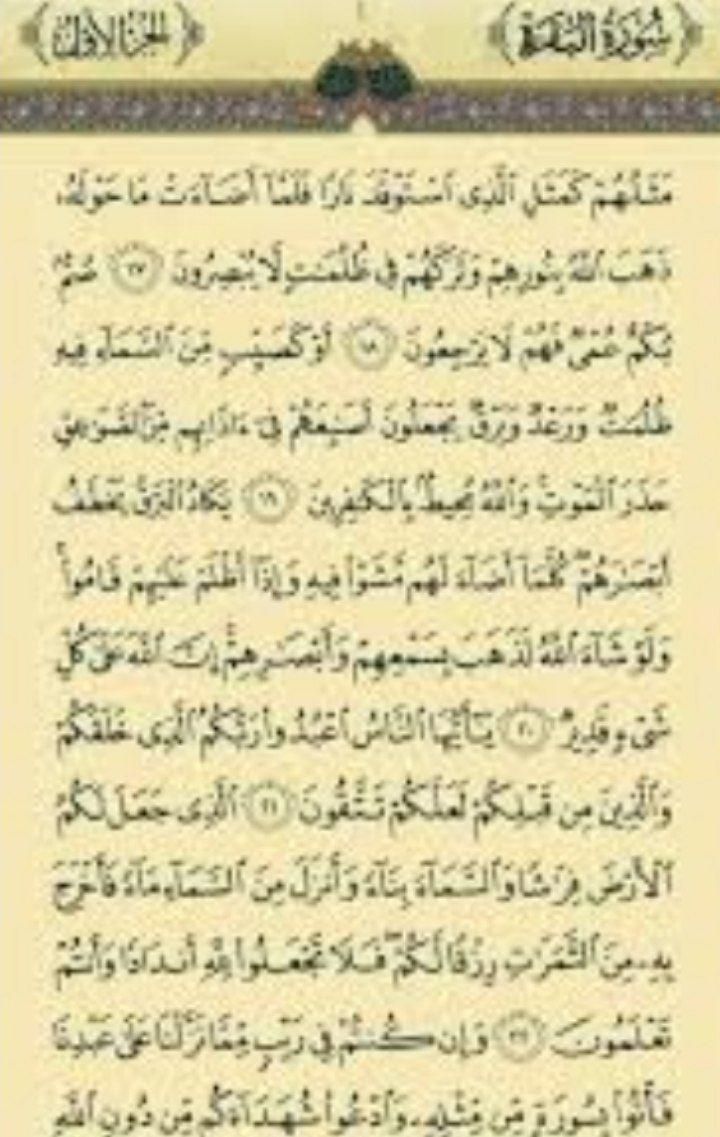 سُورَةُ البَقَرَةِ
الجُزْءُ الأَوَّلُ
مَثَلُهُمْ كَمَثَلِ ٱلَّذِى ٱسْتَوْقَدَ نَارًا فَلَمَّآ أَضَآءَتْ مَا حَوْلَهُۥ
ذَهَبَ ٱللَّهُ بِنُورِهِمْ وَتَرَكَهُمْ فِى ظُلُمَٰتٍ لَّا يُبْصِرُونَ ١٧ صُمٌّۢ
بُكْمٌ عُمْىٌ فَهُمْ لَا يَرْجِعُونَ ١٨ أَوْ كَصَيِّبٍ مِّنَ ٱلسَّمَآءِ فِيهِ
ظُلُمَٰتٌ وَرَعْدٌ وَبَرْقٌ يَجْعَلُونَ أَصَٰبِعَهُمْ فِىٓ ءَاذَانِهِم مِّنَ ٱلصَّوَٰعِقِ
حَذَرَ ٱلْمَوْتِ ۚ وَٱللَّهُ مُحِيطٌۢ بِٱلْكَٰفِرِينَ ١٩ يَكَادُ ٱلْبَرْقُ يَخْطَفُ
أَبْصَٰرَهُمْ ۖ كُلَّمَآ أَضَآءَ لَهُم مَّشَوْا۟ فِيهِ وَإِذَآ أَظْلَمَ عَلَيْهِمْ قَامُوا۟ ۚ
وَلَوْ شَآءَ ٱللَّهُ لَذَهَبَ بِسَمْعِهِمْ وَأَبْصَٰرِهِمْ ۚ إِنَّ ٱللَّهَ عَلَىٰ كُلِّ
شَىْءٍ قَدِيرٌ ٢٠ يَٰٓأَيُّهَا ٱلنَّاسُ ٱعْبُدُوا۟ رَبَّكُمُ ٱلَّذِى خَلَقَكُمْ
وَٱلَّذِينَ مِن قَبْلِكُمْ لَعَلَّكُمْ تَتَّقُونَ ٢١ ٱلَّذِى جَعَلَ لَكُمُ
ٱلْأَرْضَ فِرَٰشًا وَٱلسَّمَآءَ بِنَآءً وَأَنزَلَ مِنَ ٱلسَّمَآءِ مَآءً فَأَخْرَجَ
بِهِۦ مِنَ ٱلثَّمَرَٰتِ رِزْقًا لَّكُمْ ۖ فَلَا تَجْعَلُوا۟ لِلَّهِ أَندَادًا وَأَنتُمْ
تَعْلَمُونَ ٢٢ وَإِن كُنتُمْ فِى رَيْبٍ مِّمَّا نَزَّلْنَا عَلَىٰ عَبْدِنَا
فَأْتُوا۟ بِسُورَةٍ مِّن مِّثْلِهِۦ وَٱدْعُوا۟ شُهَدَآءَكُم مِّن دُونِ ٱللَّهِ